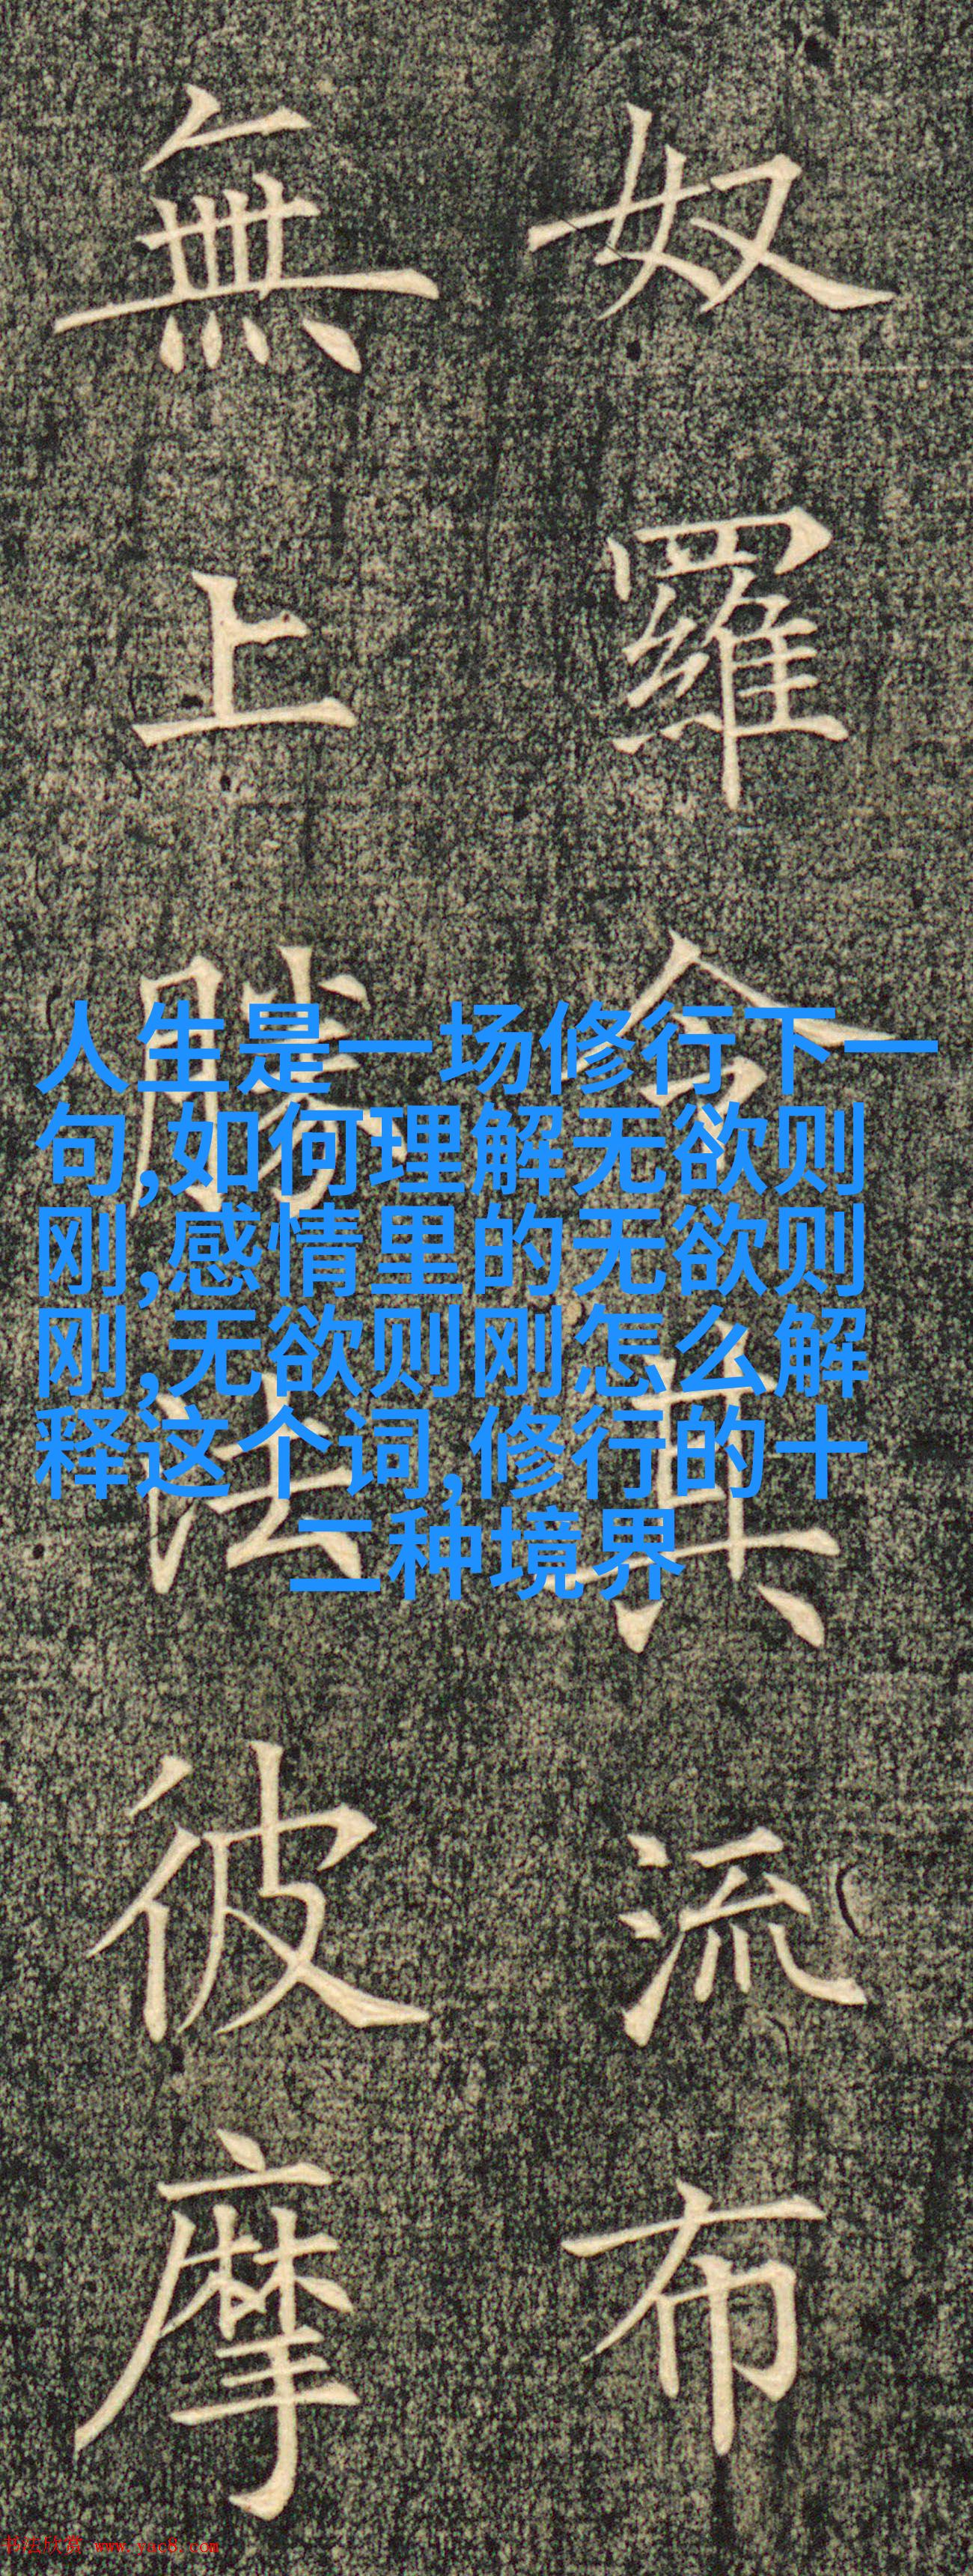 奴羅令其流布
無上勝法彼摩
人生是一场修行下一
句,如何理解无欲则
刚,感情里的无欲则
刚,无欲则刚怎么解
释这个词,修行的十
二种境界
书法欣赏 www.yac8.com